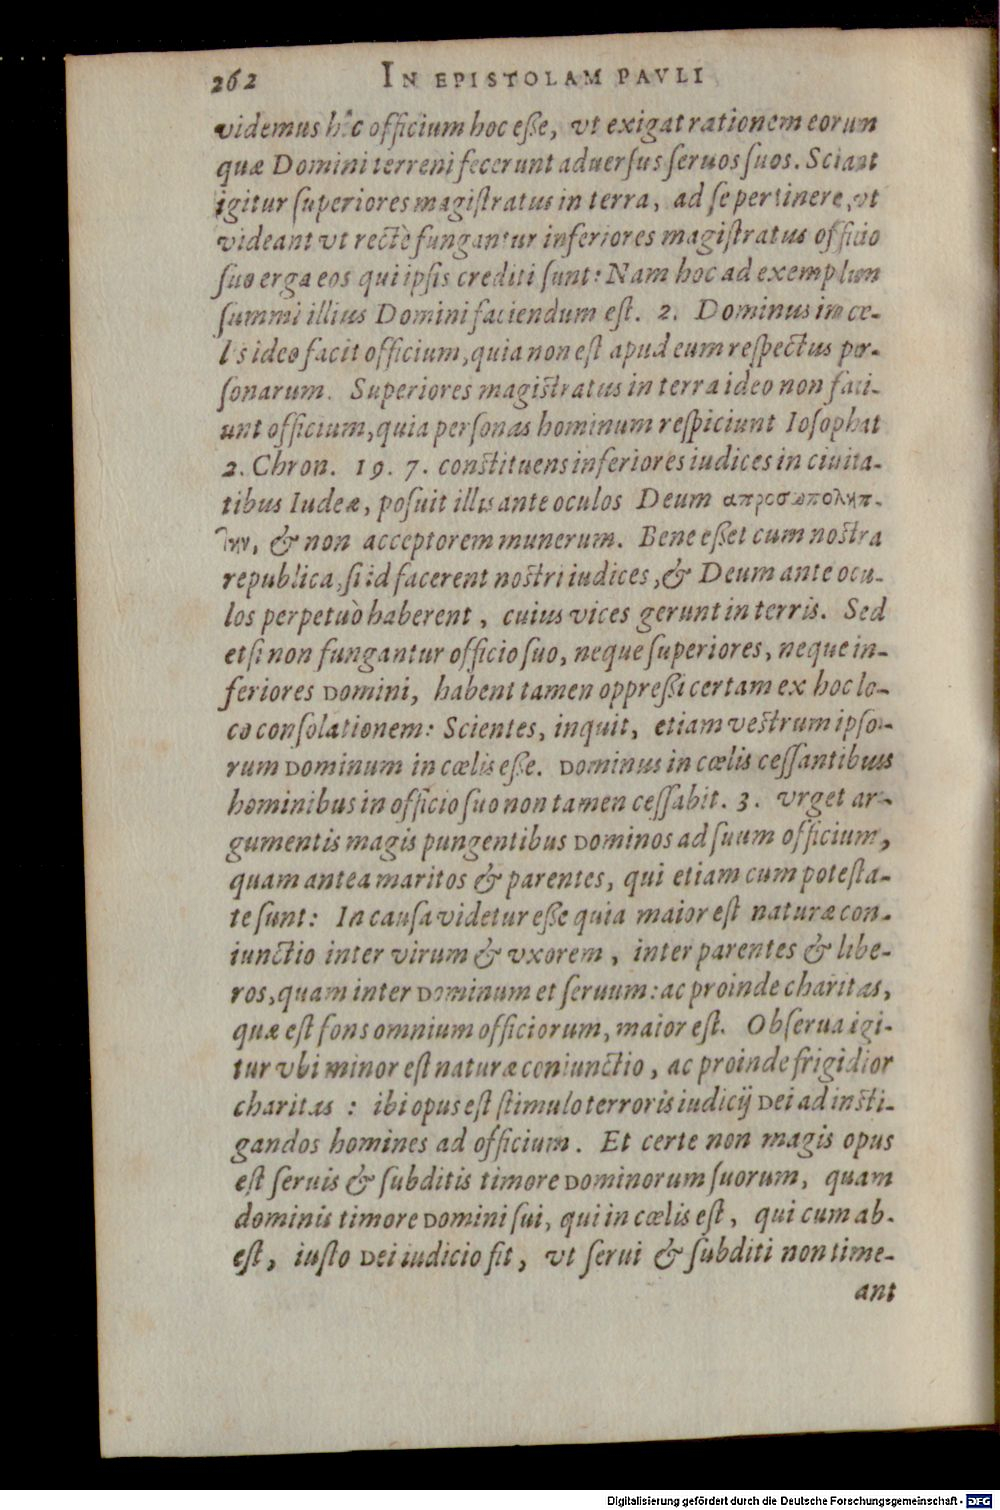 262 IN EPISTOLAM PAVLI
videmus hîc officium hoc eße, vt exigat rationem eorum
quæ Domini terreni fecerunt aduerſus ſeruos ſuos. Sciant
igitur ſuperiores magiſtratus in terra, ad ſe pertinere, vt
videant vt rectè fungantur inferiores magiſtratus officio
ſuo erga eos qui ipſis crediti ſunt: Nam hoc ad exemplum
ſummi illius Domini faciendum eſt. 2. Dominus in cœ-
lis ideo facit officium, quia non eſt apud eum reſpectus per-
ſonarum. Superiores magiſtratus in terra ideo non faci-
unt officium, quia perſonas hominum reſpiciunt Ioſophat
2. Chron. 19. 7. conſtituens inferiores iudices in ciuita-
tibus Iudeæ, poſuit illis ante oculos Deum απροσωπολήπ-
την, & non acceptorem munerum. Bene eßet cum noſtra
republica, ſi id facerent noſtri iudices, & Deum ante ocu-
los perpetuò haberent, cuius vices gerunt in terris. Sed
etſi non fungantur officio ſuo, neque ſuperiores, neque in-
feriores Domini, habent tamen oppreßi certam ex hoc lo-
co conſolationem: Scientes, inquit, etiam veſtrum ipſo-
rum Dominum in cœlis eße. Dominus in cœlis ceſſantibus
hominibus in officio ſuo non tamen ceſſabit. 3. vrget ar-
gumentis magis pungentibus Dominos ad ſuum officium,
quam antea maritos & parentes, qui etiam cum poteſta-
te ſunt: In cauſa videtur eße quia maior eſt naturæ con-
iunctio inter virum & vxorem, inter parentes & libe-
ros, quam inter Dominum et ſeruum: ac proinde charitas,
quæ eſt fons omnium officiorum, maior eſt. Obſerua igi-
tur vbi minor eſt naturæ coniunctio, ac proinde frigidior
charitas: ibi opus eſt ſtimulo terroris iudicij Dei ad inſti-
gandos homines ad officium. Et certe non magis opus
eſt ſeruis & ſubditis timore Dominorum ſuorum, quam
dominis timore Domini ſui, qui in cœlis eſt, qui cum ab-
eſt, iuſto Dei iudicio fit, vt ſerui & ſubditi non time-
ant
Digitalisierung gefördert durch die Deutsche Forschungsgemeinschaft - DFG